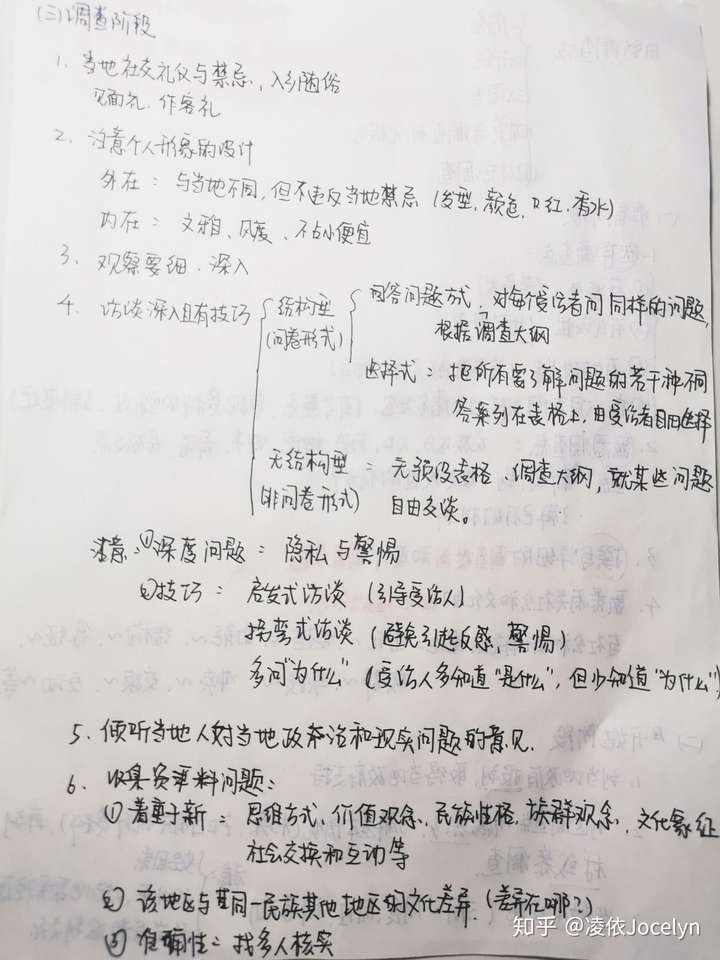 (三)调查阶段
1. 当地社交礼仪与禁忌,入乡随俗
见面礼、作客礼
2. 注意个人形象的设计
外在:与当地不同,但不违反当地禁忌(发型、颜色、口红、香水)
内在:文雅、风度、不占小便宜
3. 观察要细、深入
4. 访谈深入且有技巧
结构型
(问卷形式)
回答问题方式:对每个受访者问同样的问题,
根据调查大纲
选择式:把所有需了解问题的若干种不同
答案列在表格上,由受访者自由选择
无结构型:无预设表格、调查大纲,就某些问题
(非问卷形式) 自由交谈。
注意:①深度问题:隐私与警惕
②技巧:启发式访谈(引导受访人)
拐弯式访谈(避免引起反感、警惕)
多问"为什么"(受访人多知道"是什么",但少知道"为什么")
5、倾听当地人对当地政治和现实问题的意见.
6、收集资料问题:
①着重于新:思维方式、价值观念、民族性格、族群观念、文化象征
社会交换和互动等
②该地区与其同一民族其他地区的文化差异.(差异在哪?)
③准确性:找多人核实
知乎 @凌依Jocelyn